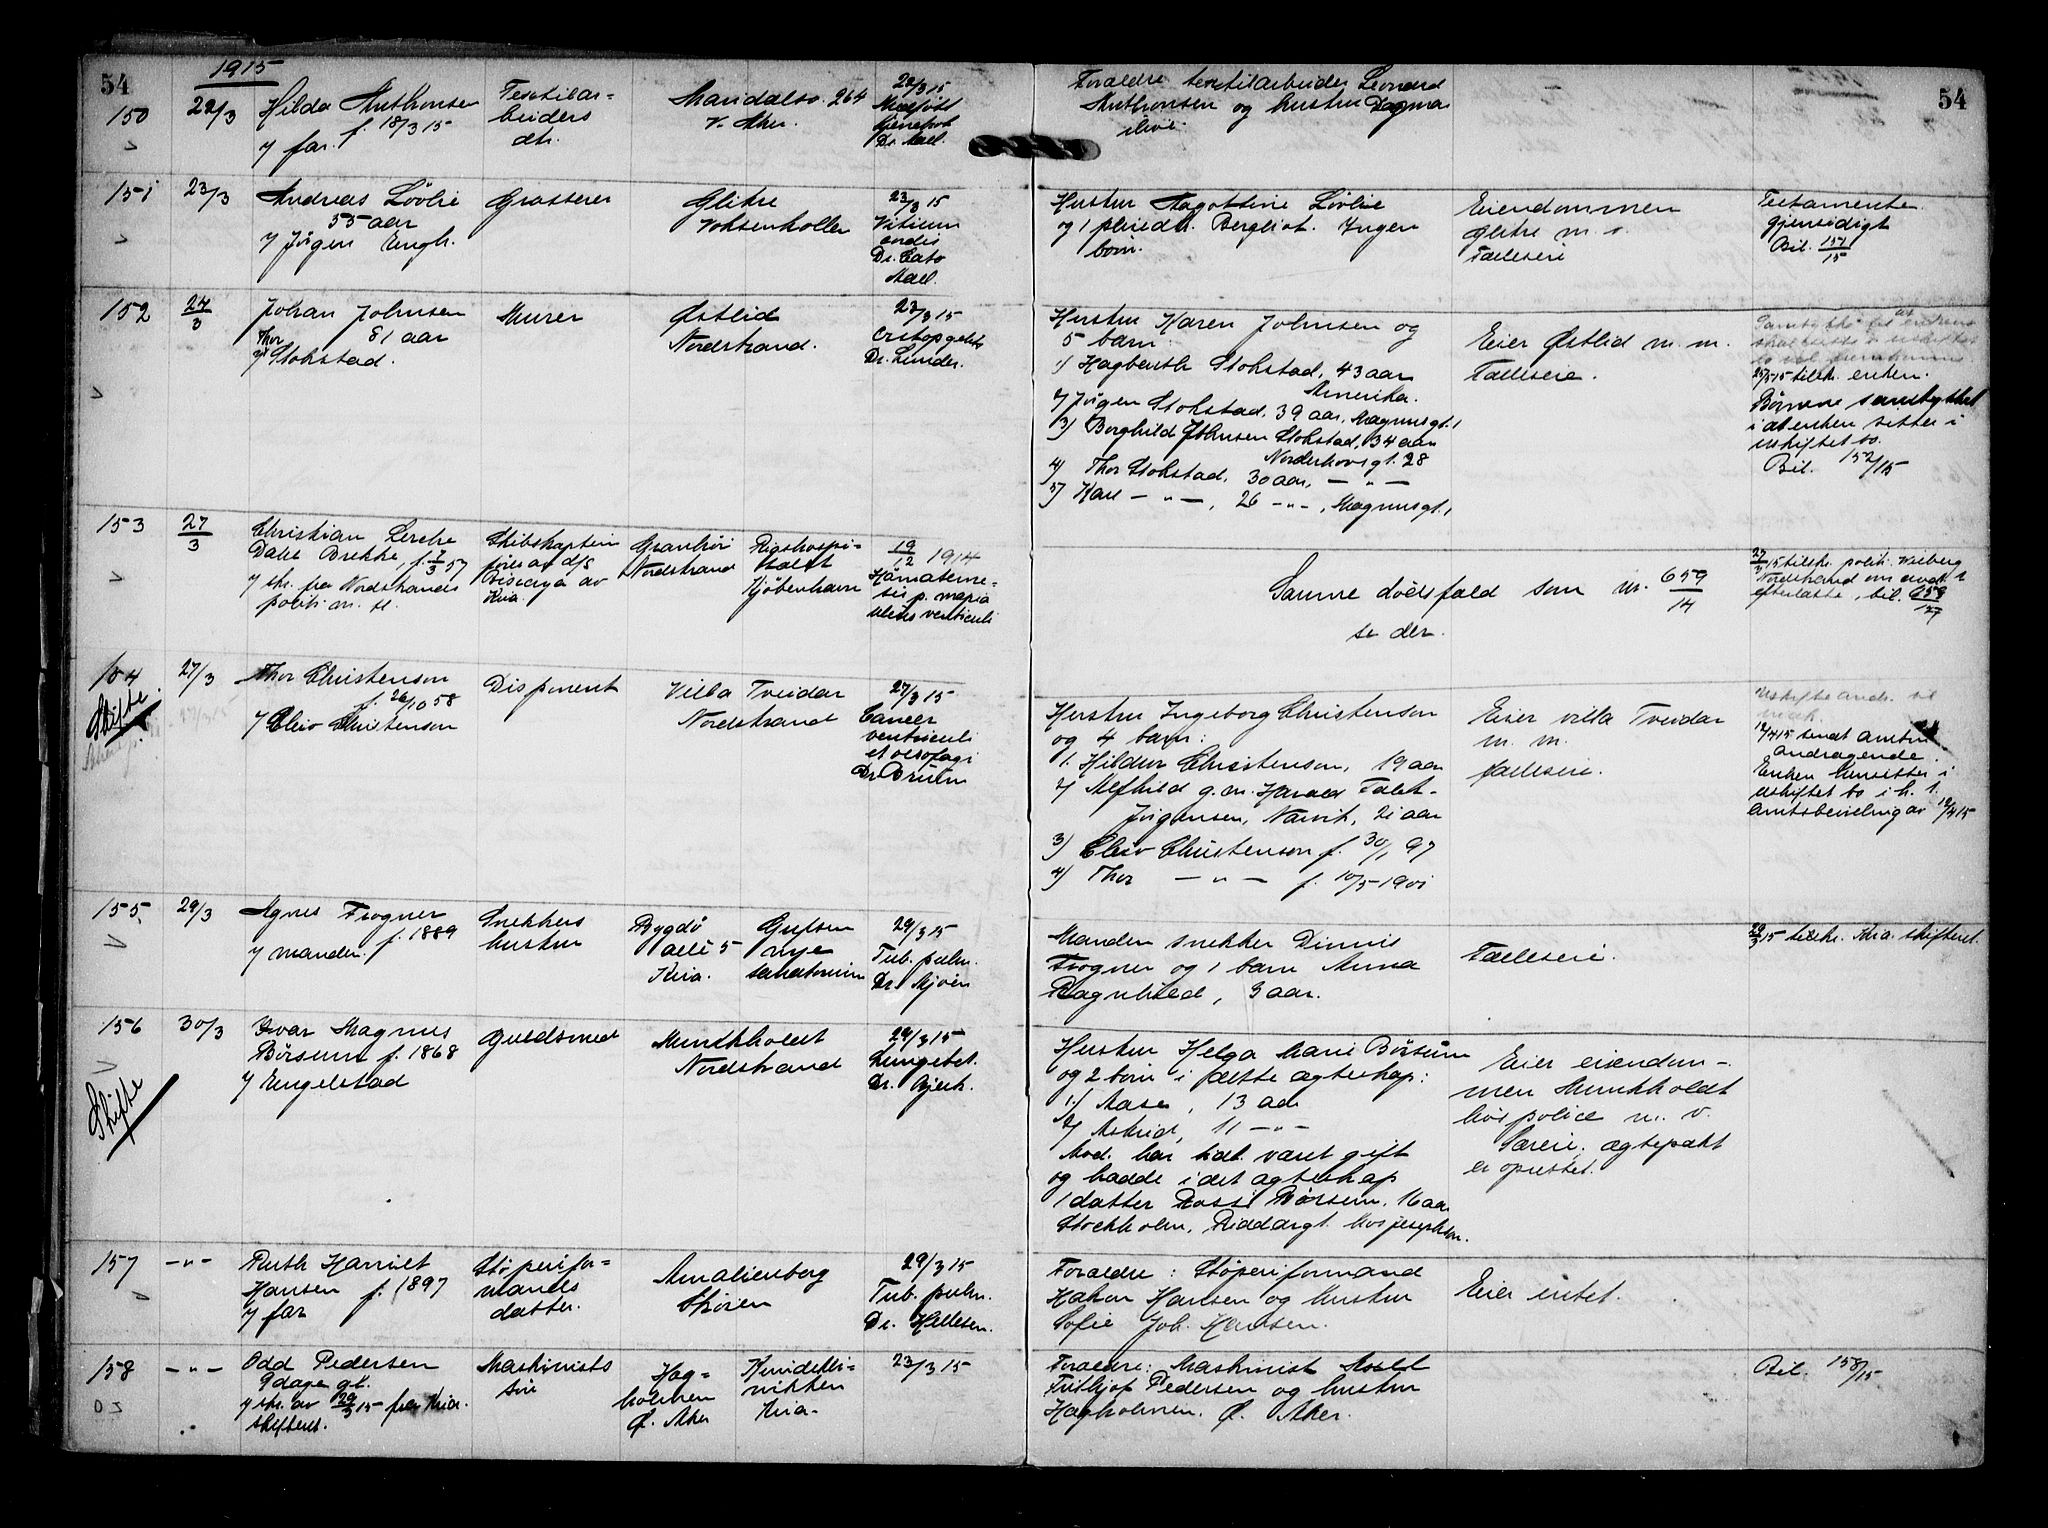 54
1915
54
150
22/3
Hilda Anthonsen
f. 18/3 15
v/ far.
Textilar=
beiders
dtr.
Maridalsv. 264
V. Aker.
22/3 15
Dr. Mæl.
Forældre textilarbeider Leonard
Anthonsen og hustru Dagmar
151
23/3
Andreas Løvlie
55 aar
v/ Jørgen Engh.
Grosserer
Glitre
Voksenkollen
23/3 15
Vitium
cordis
Dr. Cato
Aall.
Hustru Aagottine Løvlie
og 1 pleiedtr. Bergliot. Ingen
barn.
Eiendommen
Glitre m. v.
Fælleseie
Testamente
gjensidigt
Bil. 151/15
152
24/3
Johan Johnsen
81 aar
v/ Thor
Stokstad.
Murer
Østlid
Nordstrand.
23/3 15
Dr. Linder.
Hustru Karen Johnsen og
5 barn:
1) Hagbarth Stokstad, 43 aar
Amerika.
2) Jørgen Stokstad, 39 aar, Magnusgt. 1
3) Borghild Johnsen Stokstad, 34 aar
Norderhovsgt. 28
4) Thor Stokstad, 30 aar, — " —
5) Karl — " —, 26 — " —, Magnusgt. 1
Eier Østlid m. m.
Fælleseie.
25/3 15 tilskr. enken.
Børnene samtykket
i at enken sitter i
uskiftet bo.
Bil. 152/15
153
27/3
Christian Lerche
Dahl Brekke, f. 7/3 57
v/ skr. fra Nordstrands
politi m. fl.
Skibskaptein
fører av d/s
av
Kria.
Granhøi
Nordstrand
Rigshospi=
talet
Kjøbenhavn
19/12 1914
Hämateme=
sis p. magna
ulcus ventriculi
Samme dødsfald som nr. 659/14
se der.
27/3 15 tilskr. politi
Nordstrand om
efterlatte, bil.
154
Skifte
27/3
Thor Christenson
f. 26/10 58
v/ Cleiv Christenson
Disponent
Villa Tveidar
Nordstrand
27/3 15
Cancer
ventriculi
et oesofagi
Dr. Bruun
Hustru Ingeborg Christenson
og 4 barn:
1. Hildur Christenson, 19 aar
2) Alfhild g. m. Harald Falck-
Jørgensen, Narvik, 21 aar
3) Cleiv Christenson f. 30/1 97
4) Thor — " — f. 10/5 1901
Eier villa Tveidar
m. m.
fælleseie.
12/4 15 sendt amtm.
andragende.
Enken hensitter i
uskiftet bo i h. t.
amtsbevilling av 12/4 15
155
29/3
Agnes Frogner
f. 1889
v/ manden.
Snekkers
hustru
Bygdø
allé 5
Kria.
Grefsen
nye
sanatorium
29/3 15
Tub. pulm.
Dr. Mjøen
Manden snekker Dinnis
Frogner og 1 barn Anna
Ragnhild, 3 aar.
Fælleseie.
29/3 15 tilskr. Kria. skifteret.
156
Skifte
30/3
Ivar Magnus
Børsum f. 1868
v/ Engelstad
Guldsmed
Munkholdt
Nordstrand
29/3 15
Lungebet.
Dr. Bjerk.
Hustru Helga Marie Børsum
og 2 barn i dette ægteskap:
1) Aase, 13 aar
2) Astrid, 11 — " —
Avd. har tidl. været gift
og hadde i det ægteskap
1 datter Børsum. 16 aar
Stockholm, Riddargt.
Eier eiendom-
men Munkholdt
m. v.
Særeie, ægtepakt
er oprettet.
157
— " —
Ruth Harriet
Hansen f. 1897
v/ far
Støperifor=
mands
datter.
Amalienborg
Skøien
29/3 15
Tub. pulm.
Dr. Hellesen.
Forældre: Støperiformand
Hakon Hansen og hustru
Sofie Joh. Hansen.
Eier intet.
158
— " —
Odd Pedersen
9 dage gl.
v/ skr. av 29/3 15 fra Kria.
skifteret.
Maskinists
søn
Hag=
holmen
Ø. Aker
Kvindekli=
nikken
Kria.
23/3 15
Forældre: Maskinist
Frithjof Pedersen og hustru
Hagholmen, Ø. Aker.
Bil. 158/15